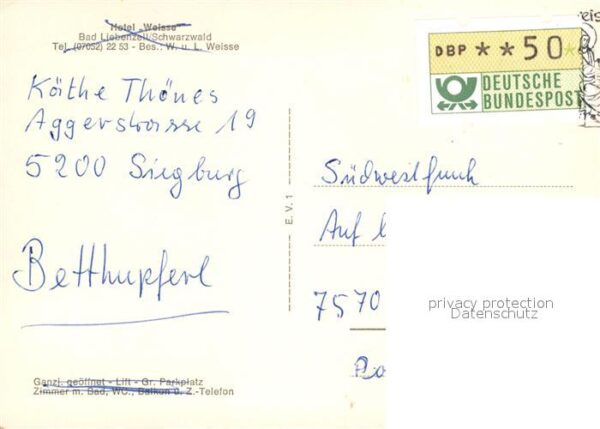 Hotel „Weisse"
Bad Liebenzell/Schwarzwald
Tel. (07052) 22 53 - Bes.: W. u. L. Weisse
Käthe Thönes
Aggerstrasse 19
5200 Siegburg
Betthupferl
Ganzj. geöffnet - Lift - Gr. Parkplatz
Zimmer m. Bad, WC., Balkon u. Z.-Telefon
E. V. 1
DBP **50*
DEUTSCHE
BUNDESPOST
Südwestfunk
Auf
7570
privacy protection
Datenschutz